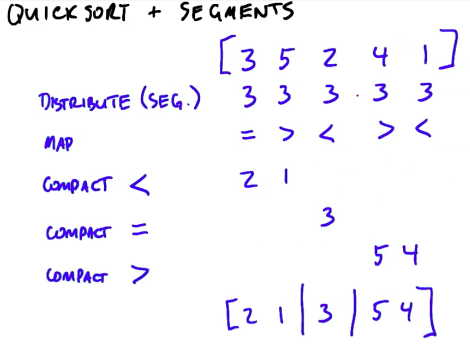 QUICKSORT + SEGMENTS
[3 5 2 4 1]
DISTRIBUTE (SEG.) 3 3 3 3 3
MAP = > < > <
COMPACT < 2 1
COMPACT = 3
COMPACT > 5 4
[2 1 | 3 | 5 4]